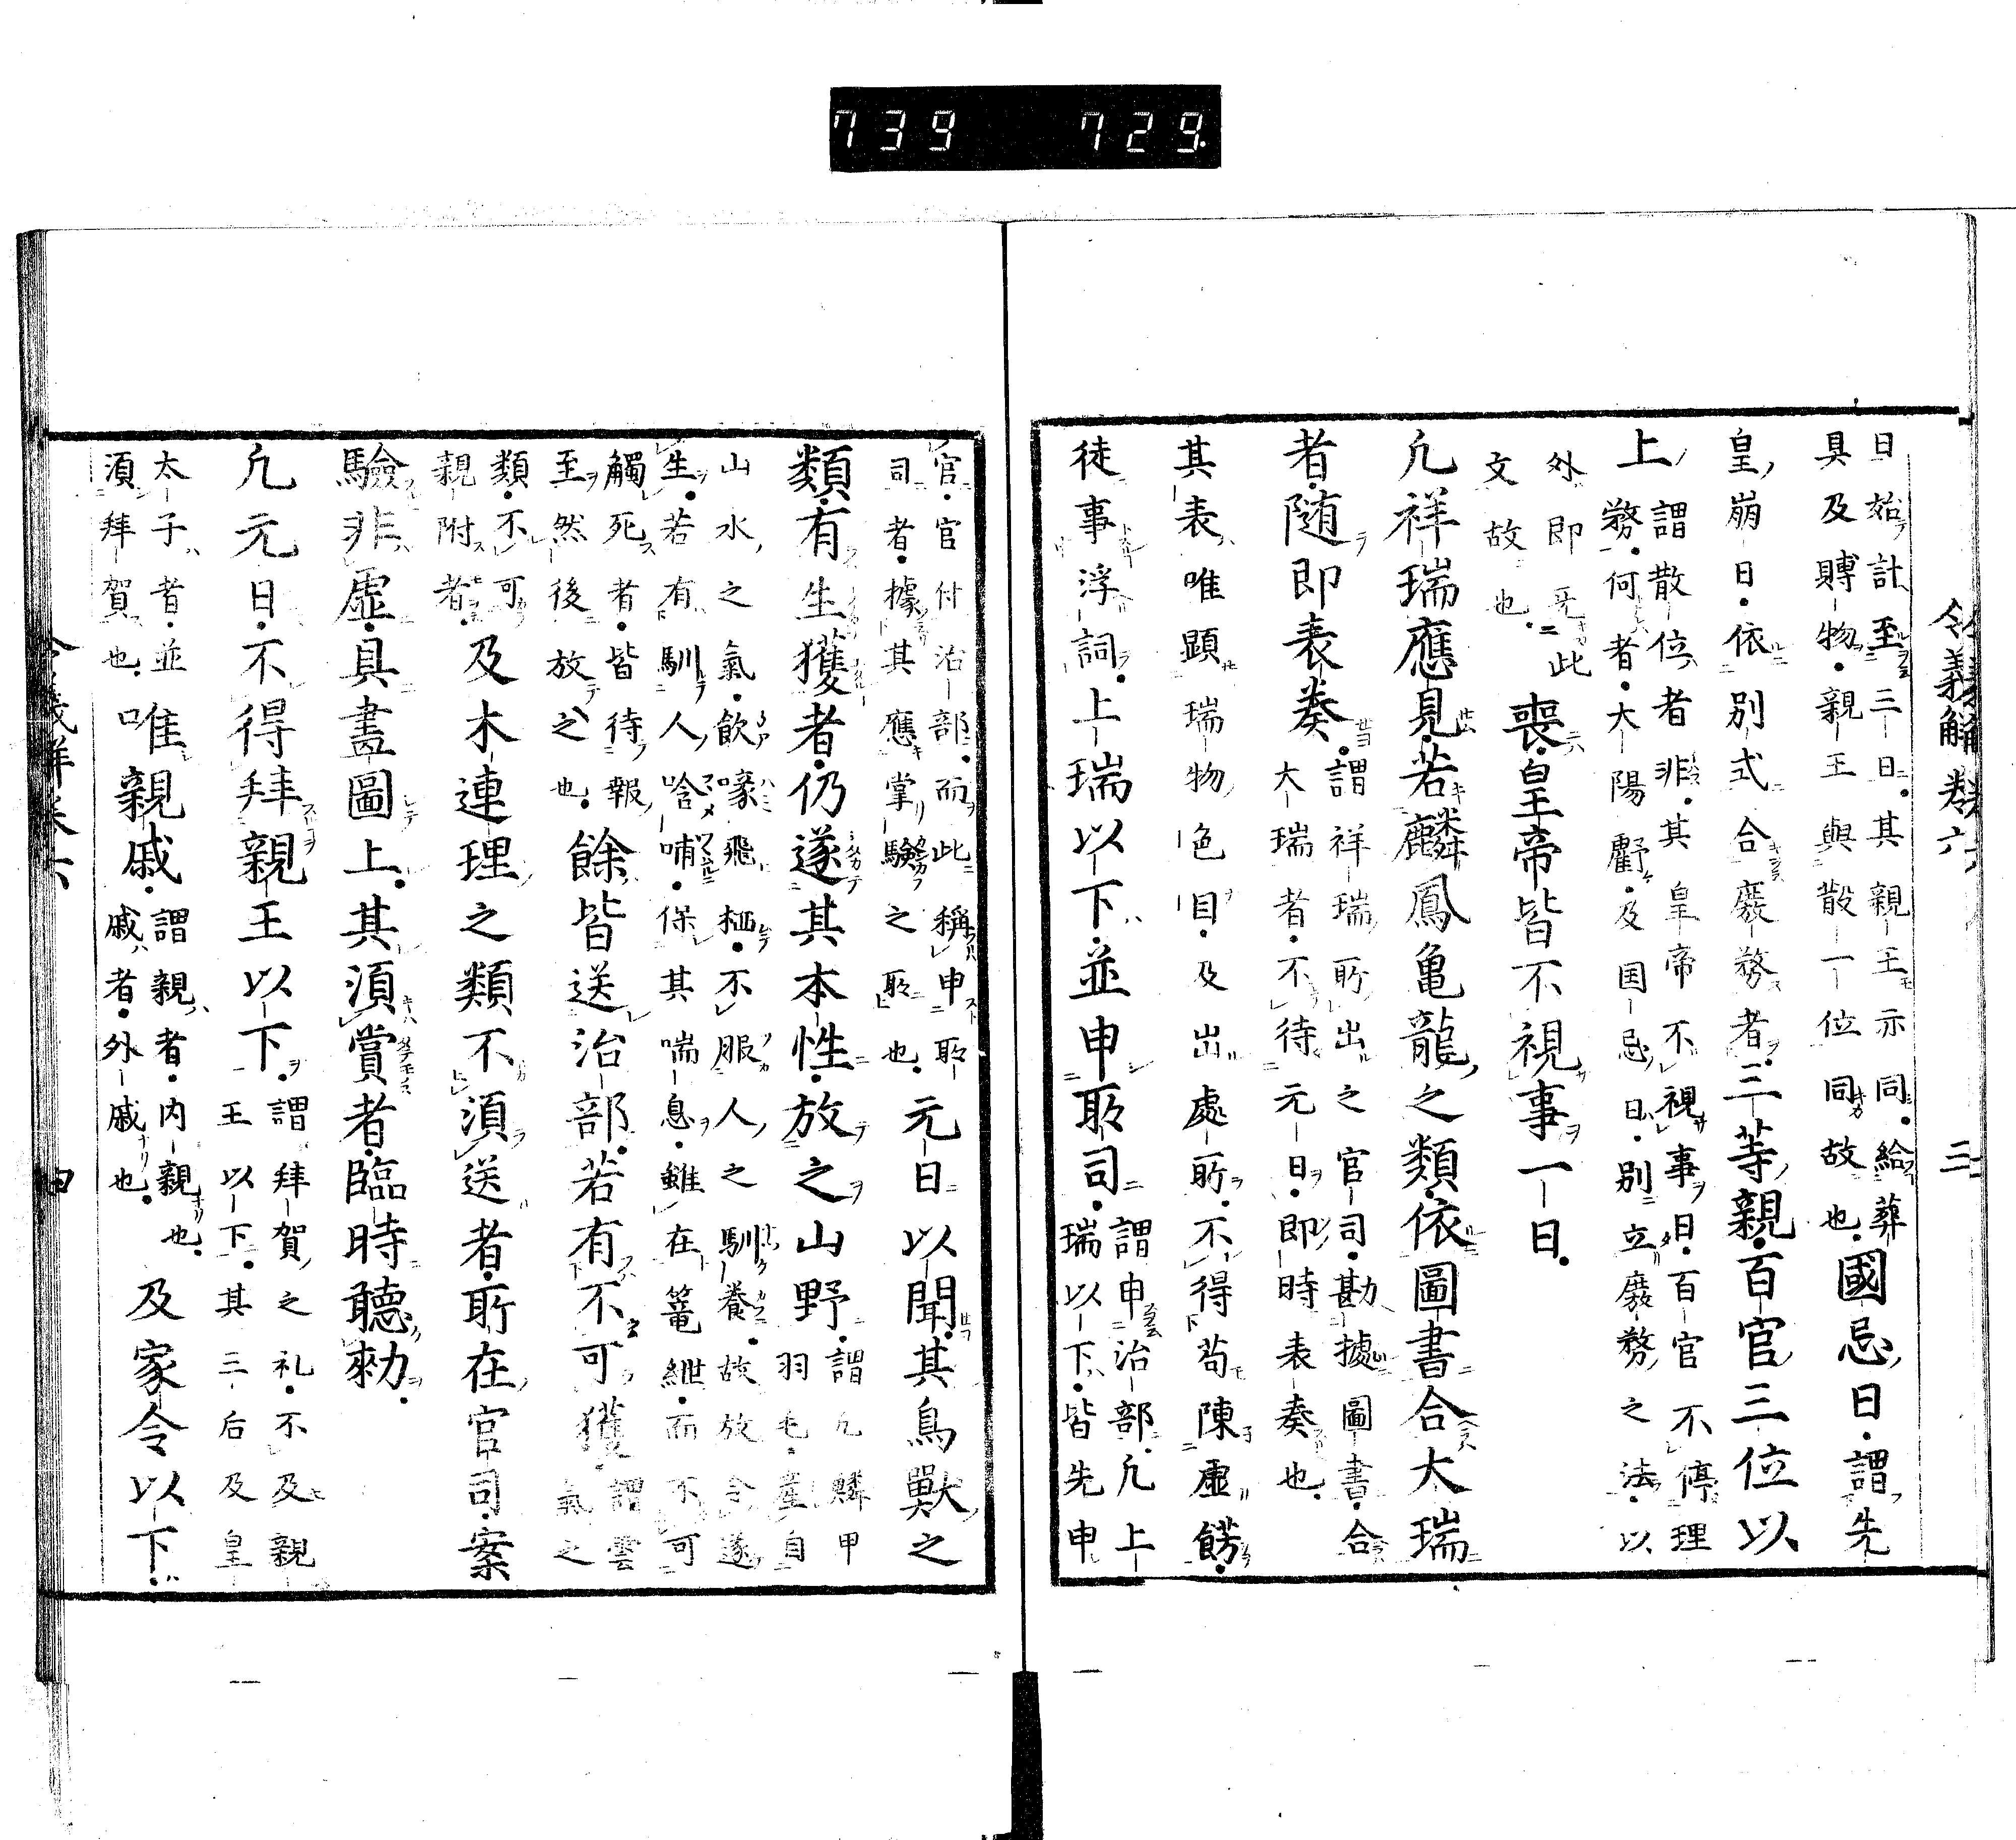 739 729.
令義解卷六 三
日始計至三日其親王示同給葬
具及賻物親王與散一位同故也國忌日謂先
皇崩日依別式合廢務者三等親百官三位以
上謂散位者非其皇帝不視事日百官不停理
務何者大陽虧及国忌日別立廢務之法以
外即无此
文故也喪皇帝皆不視事一日
凡祥瑞應見若麟鳳亀龍之類依圖書合大瑞
者随即表奏謂祥瑞所出之官司勘據圖書合
大瑞者不待元日即時表奏也
其表唯顕瑞物色目及出處所不得苟陳虛餝
徒事浮詞上瑞以下並申所司謂申治部凡上
瑞以下皆先申
官官付治部而此稱申所
司者據其應掌驗之所也元日以聞其鳥獸之
類有生獲者仍遂其本性放之山野謂凡鱗甲
羽毛産自
山水之氣飲喙飛栖不服人之馴養故放令遂
生若有馴人唅哺保其喘息雖在篭紲而不可
觸死者皆待報
至然後放之也餘皆送治部若有不可獲謂雲
氣之
類不可
親附者及木連理之類不須送者所在官司案
驗非虛具畫圖上其須賞者臨時聽勅
凡元日不得拜親王以下謂拜賀之礼不及親
王以下其三后及皇
太子者並
須拜賀也唯親戚謂親者内親也
戚者外戚也及家令以下
令義解卷六 四